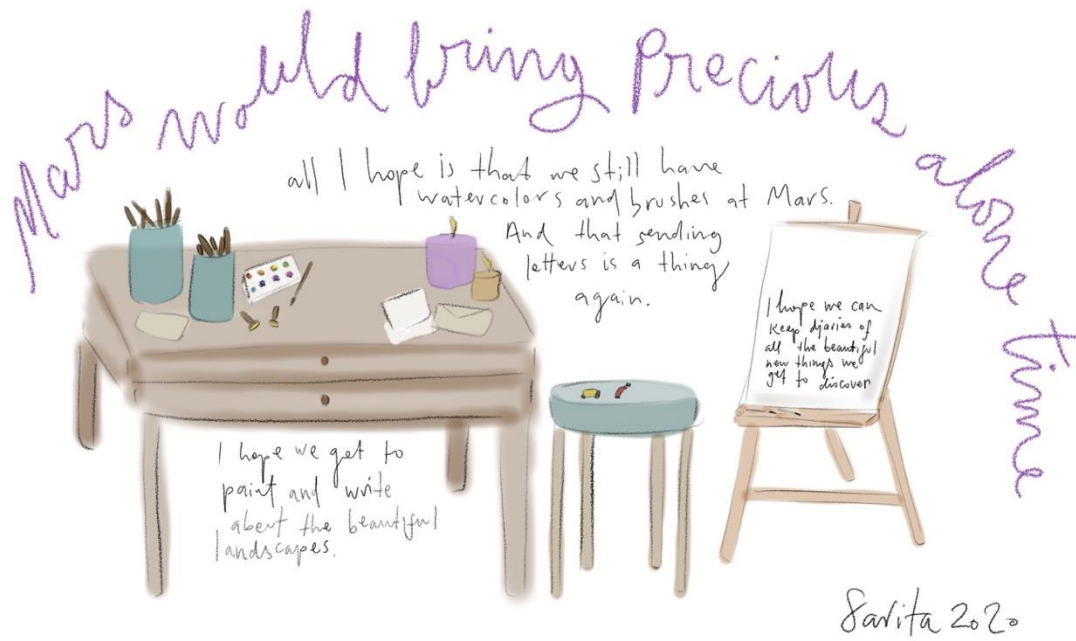 Mars would bring Precious alone time
all I hope is that we still have
watercolors and brushes at Mars.
And that sending
letters is a thing
again.
I hope we can
keep djaries of
all the beautiful
new things we
get to discover
I hope we get to
paint and write
about the beautiful
landscapes.
Sarita 2020